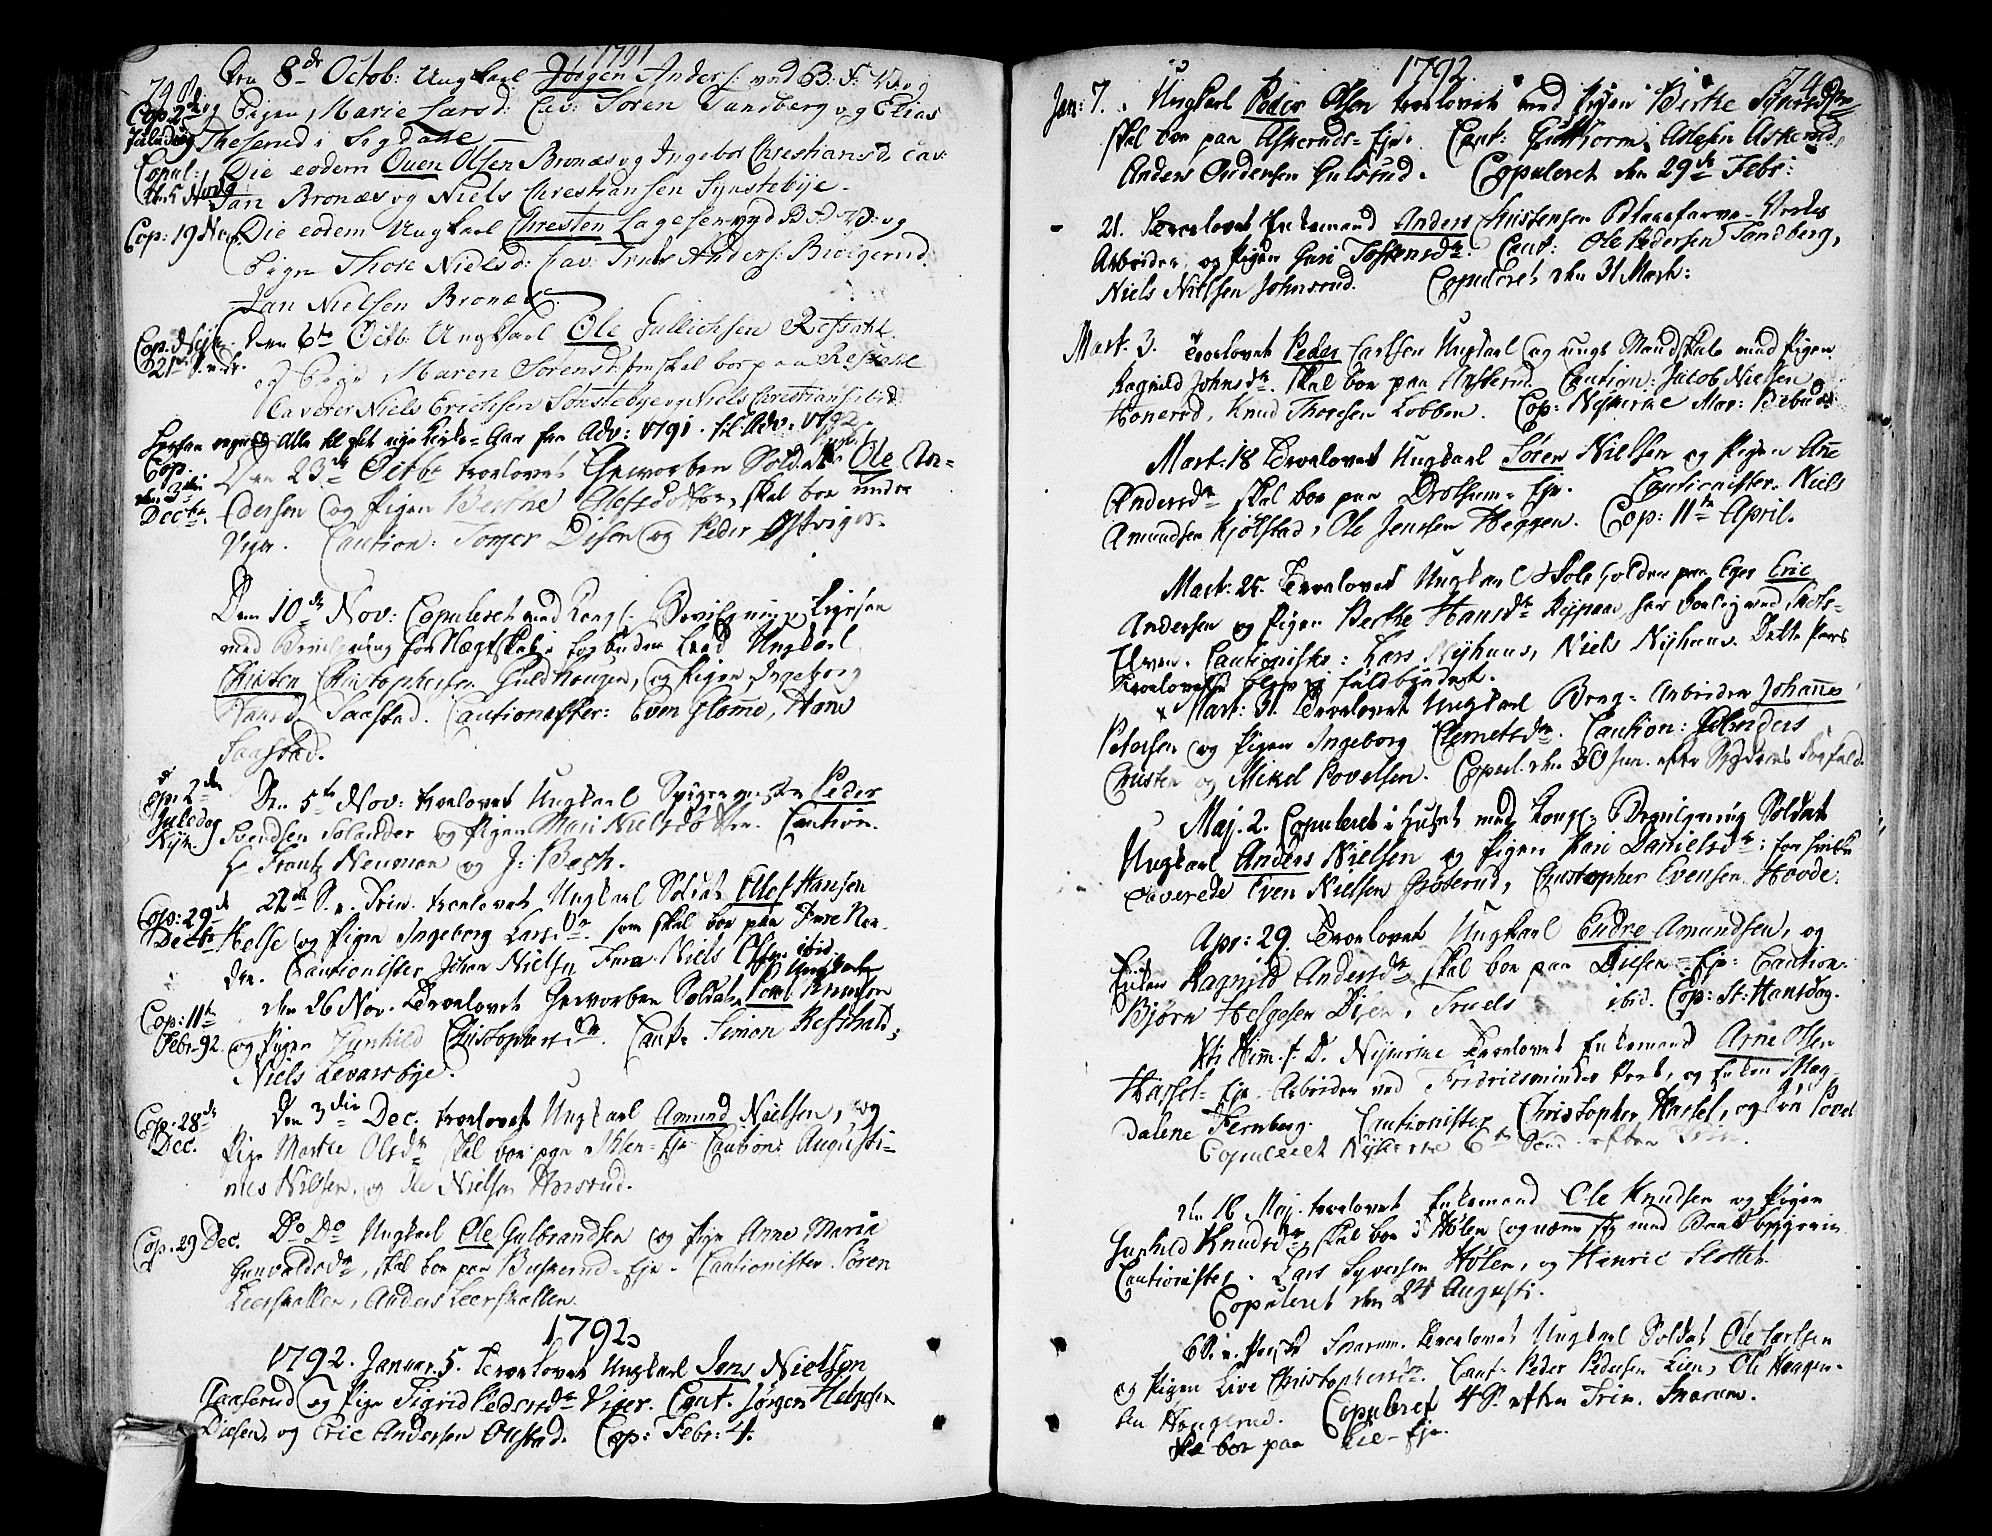 1791
den 8de Octob: Ungkarl Jørgen Anders: ved B: F: V: og
Cop: 2den Juledag
Pigen Marie Larsd: Cav: Søren Sandberg og Elias
Theserud i Sigdahl
Copul: den 5 Novbr
Die eodem Ouen Olsen Bronæs og Ingebor Christiansd. Cav:
Jan Bronæs og Niels Chrestiansen Synstebÿe.
Cop: 19 Nov.
Die eodem Ungkarl Chresten Lagesen ved B F V: og
Pigen Thore Nielsd: Cav: Truls Anders: Biölgerud.
Jan Nielsen Bronæs
Cop. Nÿk. 21
Den 6te Octb. Ungkarl Ole Gullichsen Refsahl
og Pige Maren Sörensd: som skal boe paa Refsahl
Caverer Niels Erichsen Sönstebÿe og Niels Christians: ibid.
Alle til det nye Kirke-Aar fra Adv: 1791. til Adv. 1792
Cop. den 3die Decbr.
Den 23de Octbr troelovet Geworben Soldat Ole
Edersen og Pigen Berthe Olefsdotter, skal boe
Viger. Caution: Tomer Disen og Peder Ostviger.
Den 10de Nov: Copuleret med Kongl: Bevilgning Ligesaa
med Bevilgning for Nægtskabs forbuden Leed Ungkarl
Christen Christophersen Guldhougen, og Pigen Ingeborg
Hansd. Saastad. Cautionister: Even Glomo, Hans
Saastad.
Cop: 2den Juledag Nyk:
Den 5te Nov: troelovet Ungkarl Peder
Svendsen Solander og Pigen Mari Nielsdötter. Caution.
Hr Frantz Neuman og J: Bech.
Cop: 29de Decbr
22de S. e. Trin. troelovet Ungkarl Soldat Olef Hansen
Helse og Pigen Ingeborg Larsdr. som skal boe paa Fure Nor-
der. Cautionister Johan Nielsen Fure Niels Olsen ibid.
Cop: 11te Febr. 92
den 26 Nov. Troelovet Geworben Soldat Ungkarl Poul Knudsen
og Pigen Gunhild Christophersdr. Caut: Simon Refsahl,
Niels Levorsbye.
Cop: 28de Dec.
Den 3die Dec. troelovet Ungkarl Amund Nielsen, og
Pige Marthe Olsdr skal boe paa Eje Caution: Augusti-
nus Nilsen, og Ole Nielsen Horsrud.
Cop: 29 Dec.
Do Do Ungkarl Ole Gulbrandsen og Pige Anne Marie
Gunvaldsdr, skal boe paa Buskerud-Eje. Cautionister Sören
Leerskallen, Anders Leerskallen.
1792.
1792. Januar. 5. Troelovet Ungkarl Jens Nielsen
Aaserud og Pige Sigrid Pedersdr Viger. Caut. Jørgen Helgesen
Diesen, og Eric Andersen Olstad. Cop: Febr: 4.
1792.
Jan: 7. Ungkarl Peder Olsen troelovet med Pigen Berthe Syversdr
skal boe paa Askeruds-Eje. Caut: Guttorm Aslesen Askerud,
Anders Andersen Hulsrud. Copuleret den 29de Febr:
21. Troelovet Enkemand Anders Christensen Blaafarve-Verkes
Arbeider og Pigen Guri Tostensdr. Caut: Ole Pedersen Sandberg,
Niels Nielsen Johnsrud. Copuleret den 31 Mart:
Mart. 3. Troelovet Peder Carlsen Ungkarl og ungt Mandskab med Pigen
Ragnild Johnsdr. skal boe paa Caution: Jacob Nielsen
Honerud, Knud Thoresen Lobben. Cop: Nykirke Mar: Bebud:
Mart: 18 Troelovet Ungkarl Sören Nielsen og Pigen Anne
Andersdr skal boe paa Drolsum-Eje. Cautionister Niels
Amundsen Kjölstad, Ole Jensen Heggen. Cop: 11te April.
Mart: 25. Troelovet Ungkarl Soldat paa Eger Eric
Andersen og Pigen Berthe Hansdr
Elven. Cautionister: Lars Nÿhuus, Niels Nÿhuus. Dette Pars
Troelovelse blev ej fuldbyrdet.
Mart: 31. Troelovet Ungkarl Berg-Arbeider Johannes
Petersen og Pigen Ingeborg Clemetsdr. Caution: Anders
Christen og Mikel Povelsen. Copul. den 30 Jun. efter
Maj. 2. Copuleret i Huset med Kongl: Bevilgning Soldat
Ungkarl Anders Nielsen og Pigen Kari Danielsdr: for hvilke
caverede Even Nielsen Gröterud, Christopher Evensen Hovde.
Apr: 29. Troelovet Ungkarl Endre Amundsen, og
Enken Ragnild Andersdr skal boe paa Diesen-Eje: Caution:
Björn Helgesen Disen, Truels ibid. Cop: St: Hansdag.
Chr. Himm. f. D. Nykirke Troelovet Enkemand Arne Olsen
Hassel-Eje. Arbeider ved Fredricsminde Verk, og Enken Mag-
dalene Fernberg. Cautionister Christopher Hassel, og Povel
Copuleret Nykirke 6te Sønd. efter Trin.
den 16 Maj. troelovet Enkemand Ole Knudsen og Pigen
Gunhild Knudsdr, skal boe i Hölen og nære sig med
Cautionister. Lars Syversen Hölen, og Henric Slottet.
Copuleret den 24 Augusti.
6 S. e. Paaske Snarum. Troelovet Ungkarl Soldat Ole Carlsen
og Pigen Live Christophersdr. Caut: Peder Pedersen Lien, Ole Haagen-
sen Haugerud. Copuleret 4 S. efter Trin. Snarum.
skal boe paa Lie-Eje.